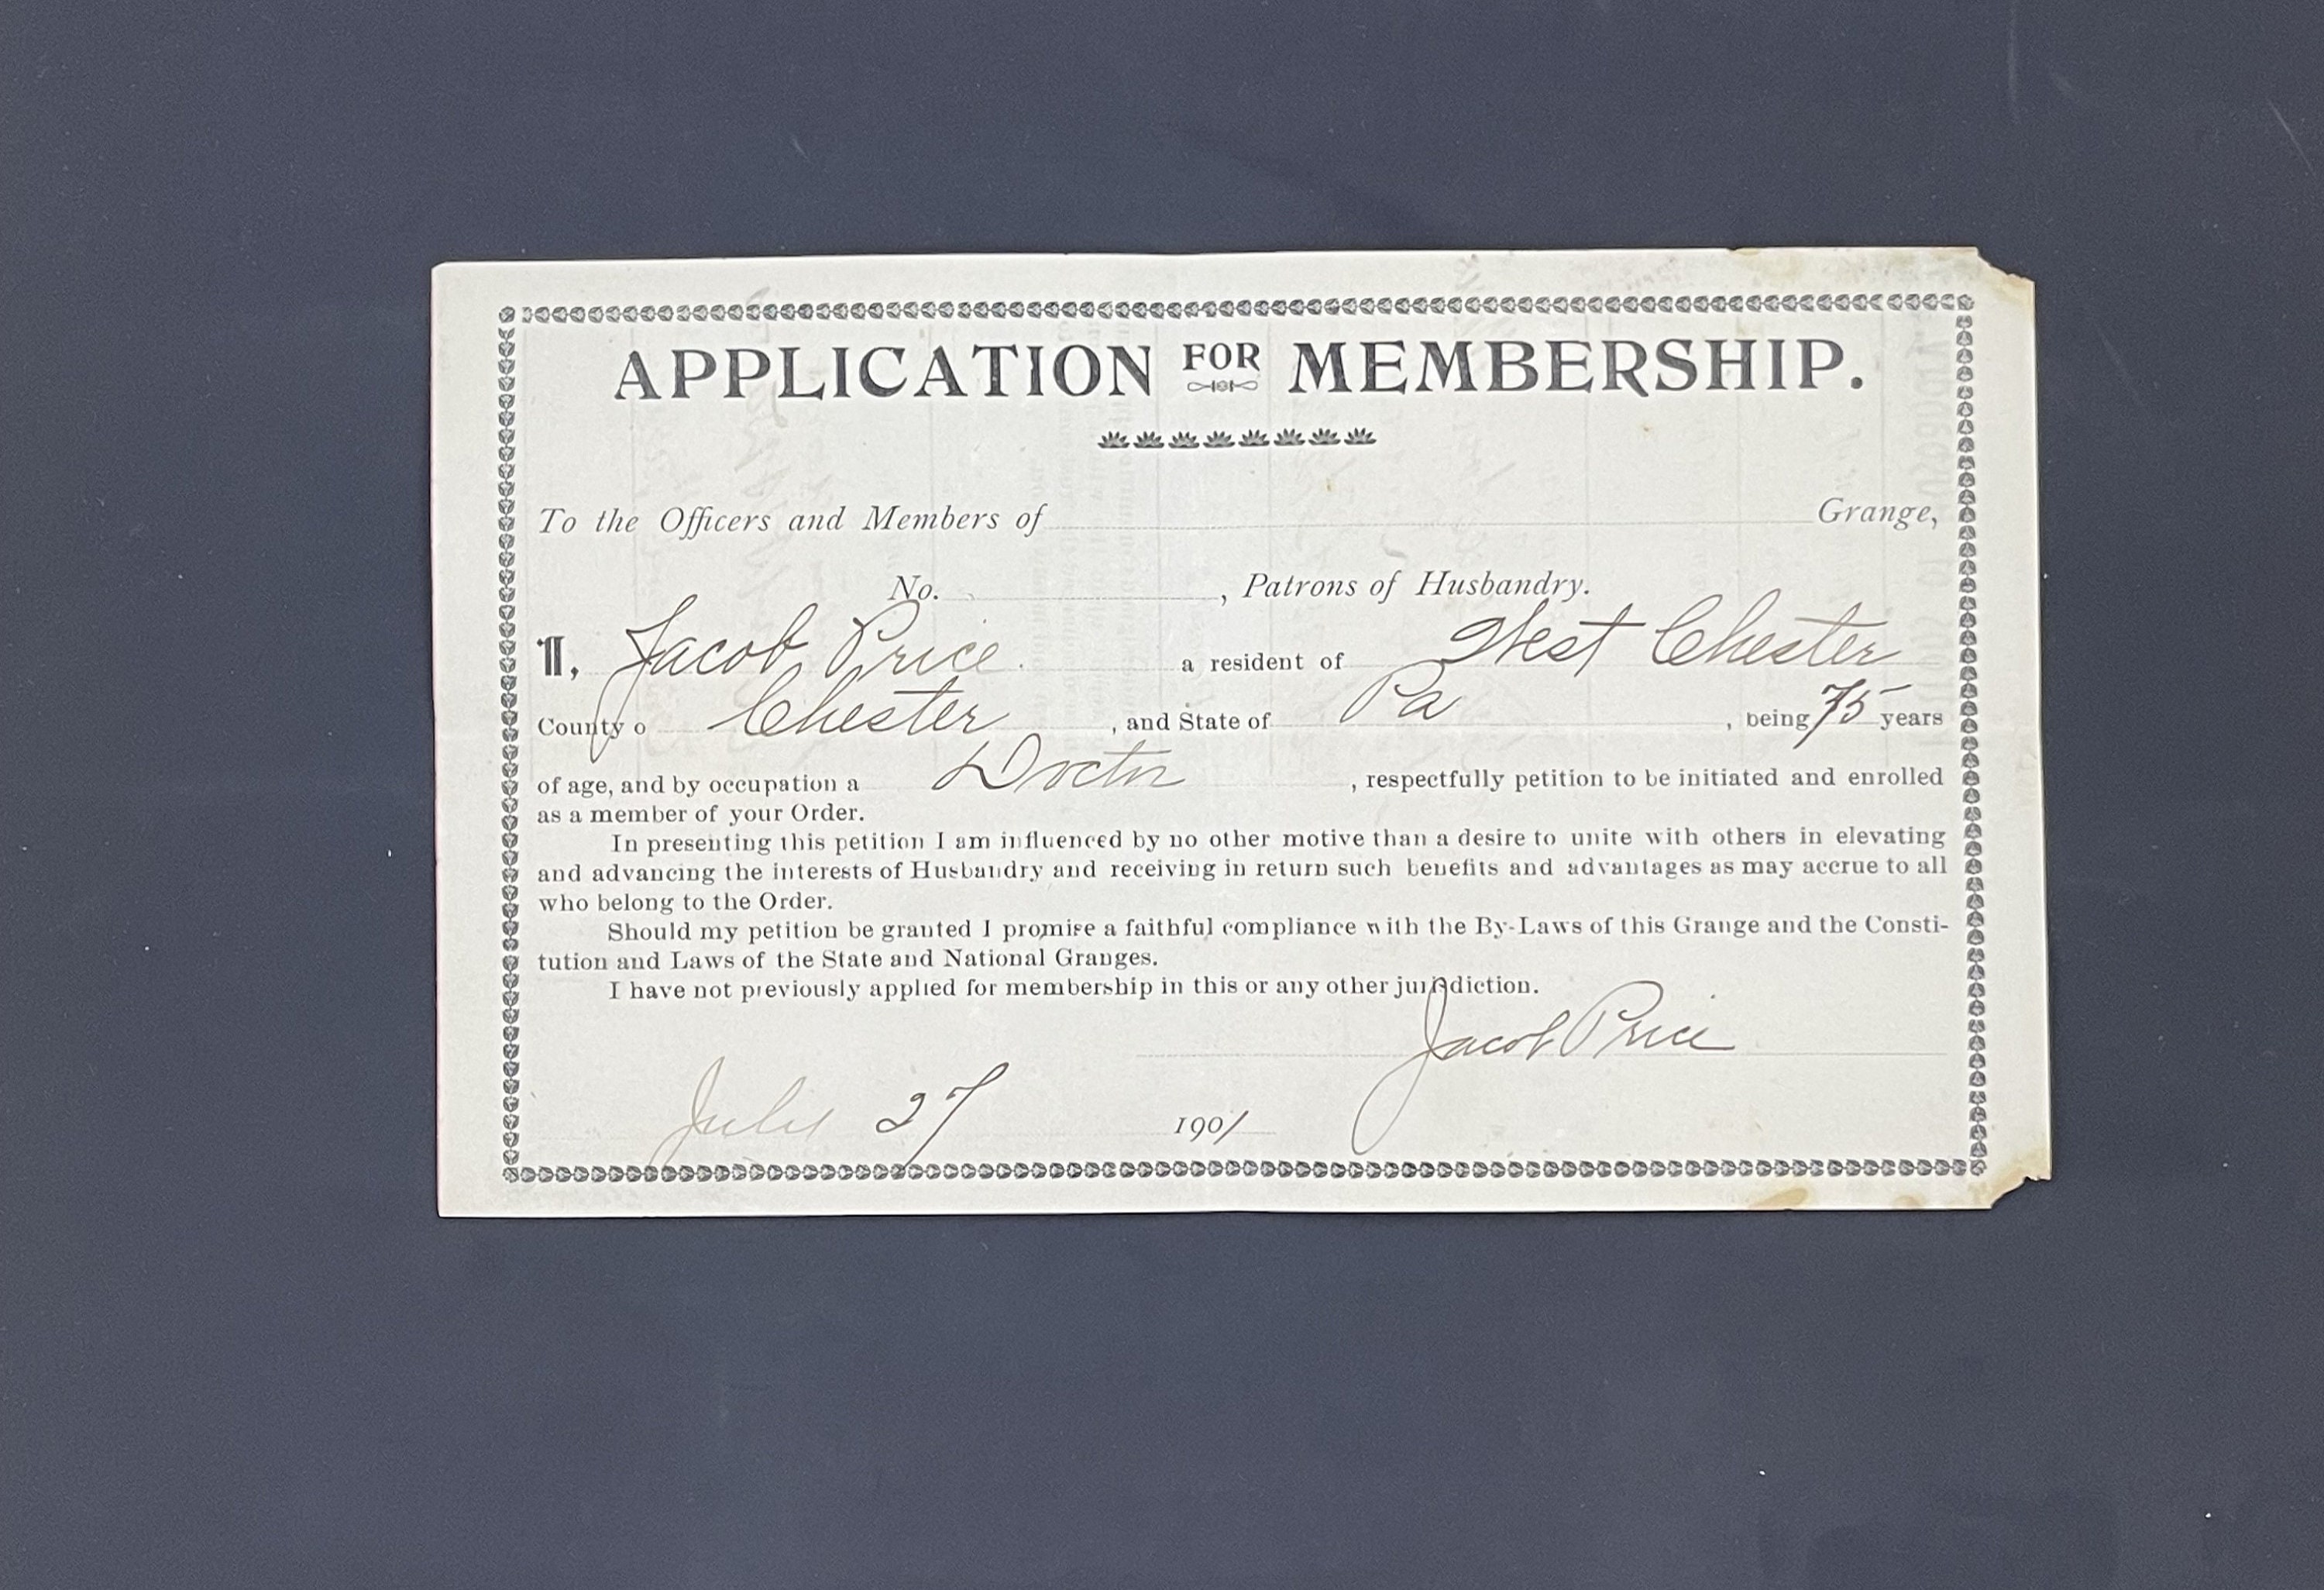 APPLICATION FOR MEMBERSHIP.
To the Officers and Members of Grange,
No. , Patrons of Husbandry.
I, Jacob Price a resident of West Chester
County o Chester , and State of Pa , being 75 years
of age, and by occupation a Doctor , respectfully petition to be initiated and enrolled
as a member of your Order.
In presenting this petition I am influenced by no other motive than a desire to unite with others in elevating
and advancing the interests of Husbandry and receiving in return such benefits and advantages as may accrue to all
who belong to the Order.
Should my petition be granted I promise a faithful compliance with the By-Laws of this Grange and the Consti-
tution and Laws of the State and National Granges.
I have not previously applied for membership in this or any other jurisdiction.
Jacob Price
July 27 1901